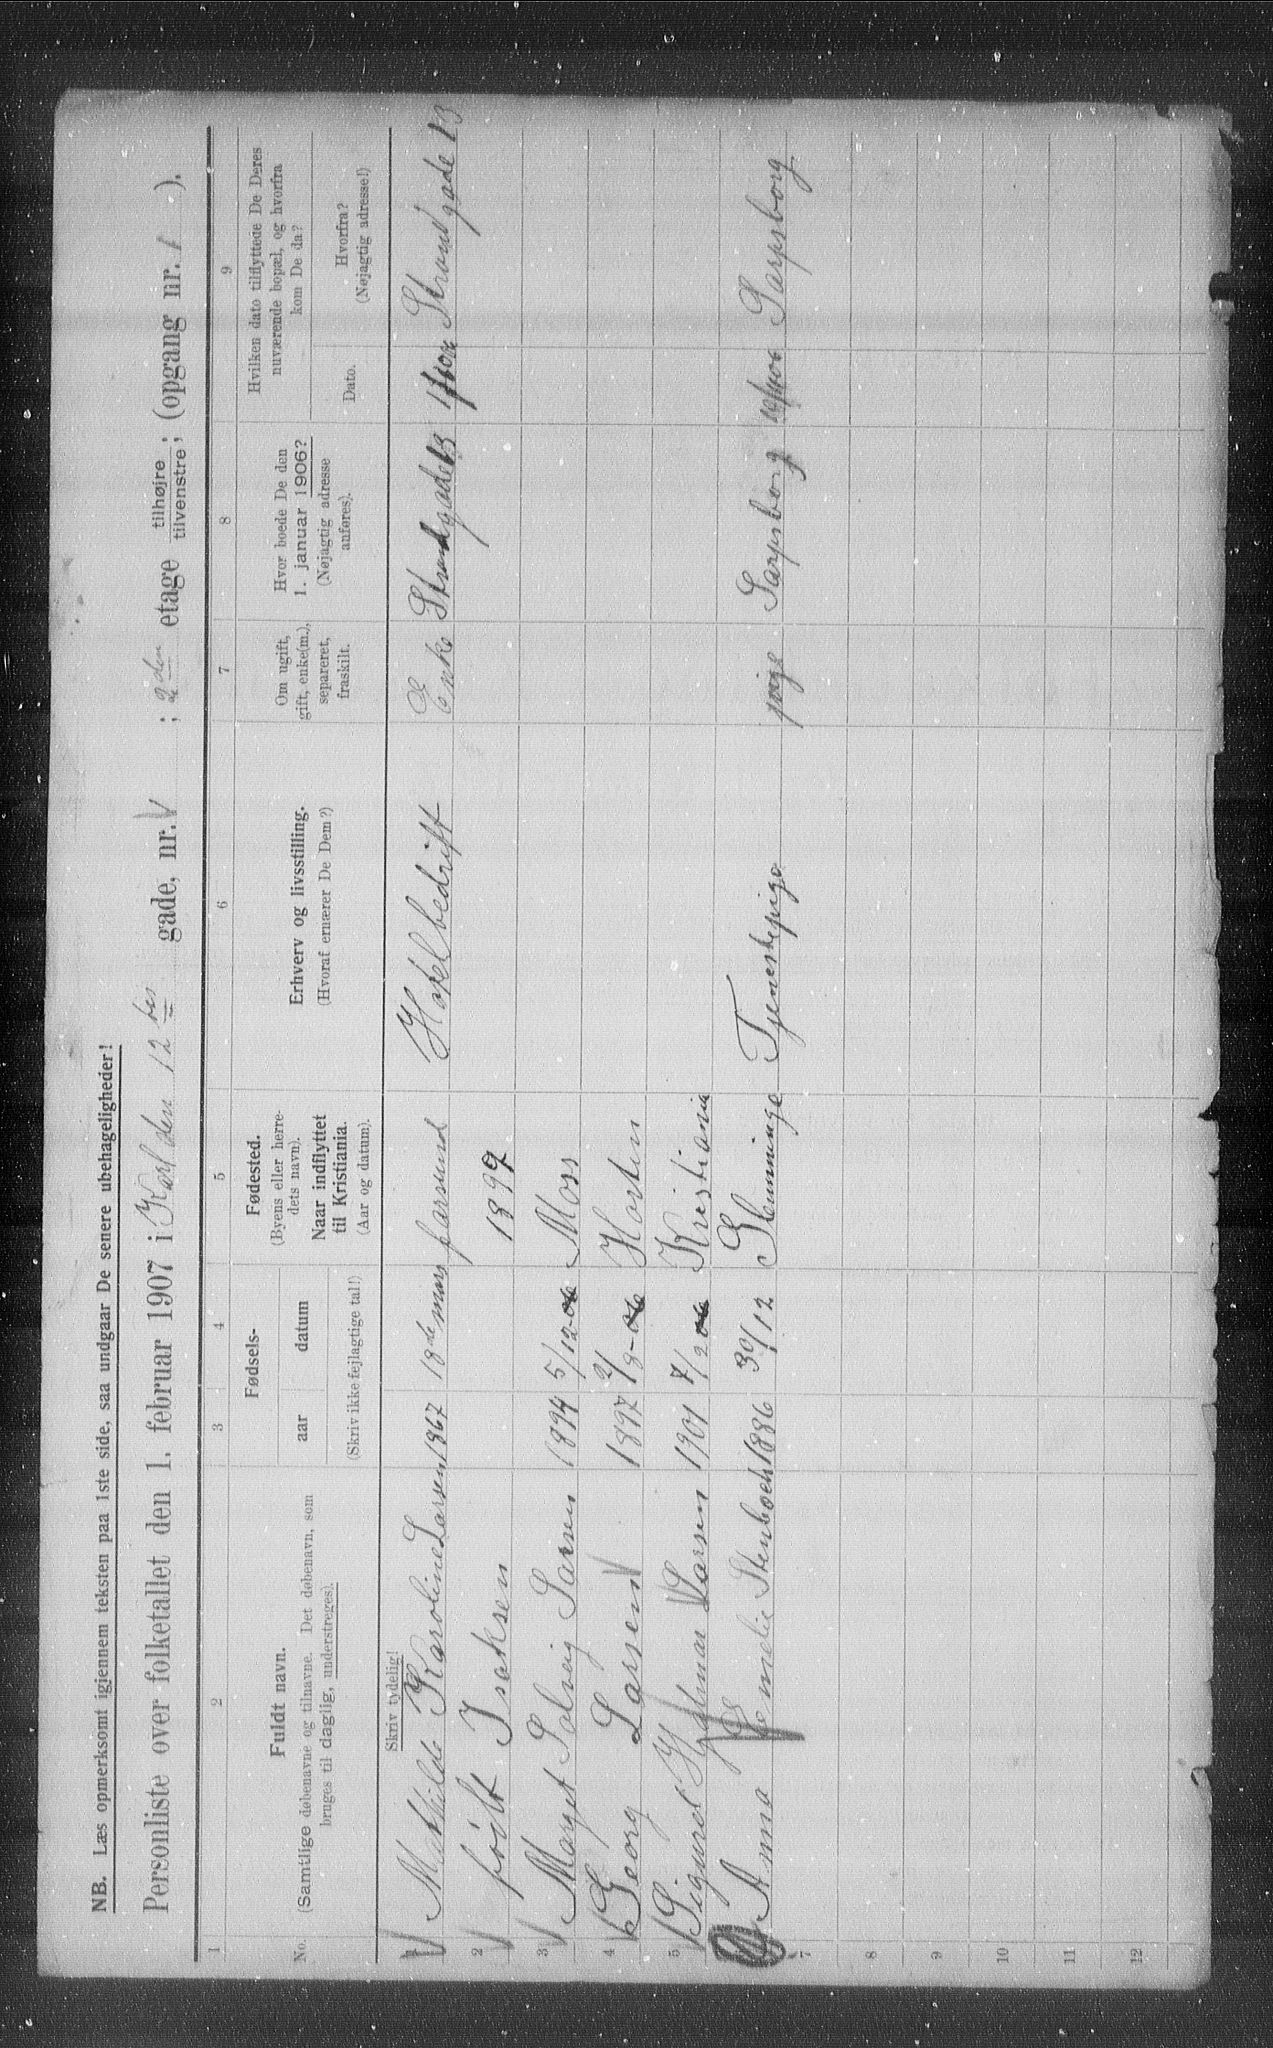 NB. Læs opmerksomt igjennem teksten paa 1ste side, saa undgaar De senere ubehageligheder!
Personliste over folketallet den 1. februar 1907 i Karl den 12 tes gade, nr. ; 2 den etage tilhøjre ; tilvenstre ; (opgang nr. 1 ).
1 2 3 4 5 6 7 8 9
No. Fuldt navn.
(Samtlige døbenavne og tilnavne. Det døbenavn, som
bruges til daglig, understreges).
Fødsels-
aar datum
(Skriv ikke fejlagtige tal!)
Fødested.
(Byens eller herre-
dets navn).
Naar indflyttet
til Kristiania.
(Aar og datum).
Erhverv og livsstilling.
(Hvoraf ernærer De Dem?)
Om ugift,
gift, enke(m.),
separeret,
fraskilt.
Hvor boede De den
1. januar 1906?
(Nøjagtig adresse
anføres).
Hvilken dato tilflyttede De Deres
nuværende bopæl, og hvorfra
kom De da?
Dato. Hvorfra?
(Nøjagtig adresse!)
Skriv tydelig!
Mathilde Karoline Larsen 1867 18de mars farsund Hotelbedrift Enke Strandgade 13 Strandgade 13
2 født Isaksen 1899
3 Marget Solveig Larsen 1894 5/12 Moss
4 Georg Larsen 1897 Horten
5 Sigurd Hjalmar Larsen 1901 7/2 Kristiania
Anna Emelie Stenboch 1886 30/12 Glemminge Tjenestepige pige Sarpsborg Sarpsborg
7
8
9
10
11
12